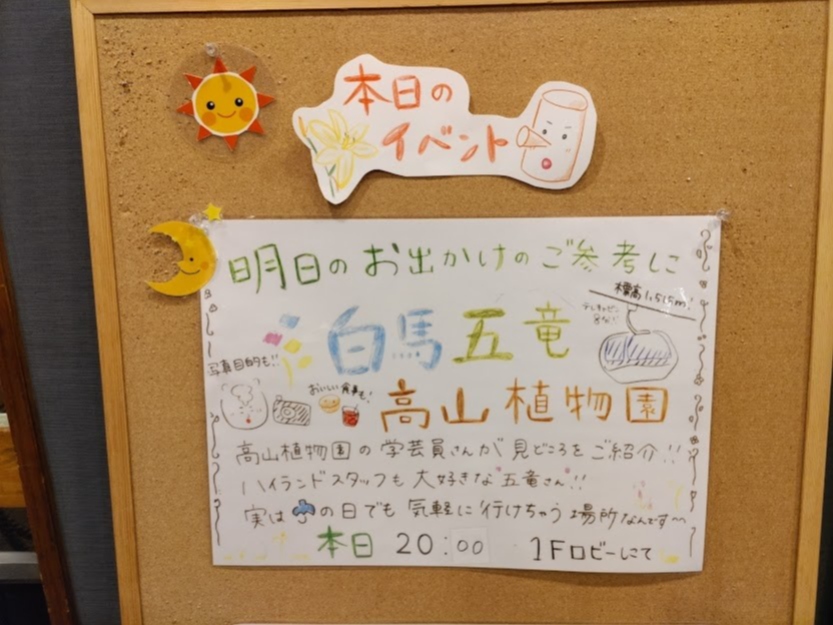 本日の
イベント
明日のお出かけのご参考に
標高1,515m!
テレキャビン
8分!!
白馬五竜
写真目的も!!
おいしい食事も!
高山植物園
高山植物園の学芸員さんが見どころをご紹介!!
ハイランドスタッフも大好きな五竜さん!!
実は☂の日でも気軽に行けちゃう場所なんです〜
本日 20:00 1Fロビーにて